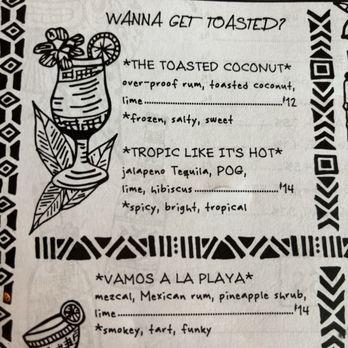 WANNA GET TOASTED?
*THE TOASTED COCONUT*
over-proof rum, toasted coconut,
lime $12
*frozen, salty, sweet
*TROPIC LIKE IT'S HOT*
jalapeno Tequila, POG,
lime, hibiscus $14
*spicy, bright, tropical
*VAMOS A LA PLAYA*
mezcal, Mexican rum, pineapple shrub,
lime $14
*smokey, tart, funky